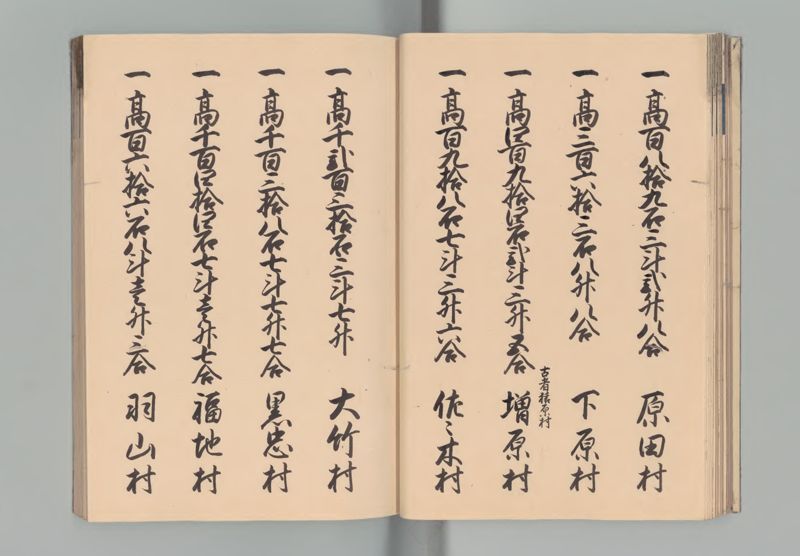 一高百八拾九石三斗弐升八合 原田村
一高三百六拾三石八升八合 下原村
古者猿原村
一高四百九拾四石弐斗三升五合 増原村
一高百九拾八石七斗三升六合 佐々木村
一高千弐百三拾石三斗七升 大竹村
一高千百三拾八石七斗七升七合 黒忠村
一高千百四拾四石七斗壱升七合 福地村
一高百六拾六石八斗壱升三合 羽山村